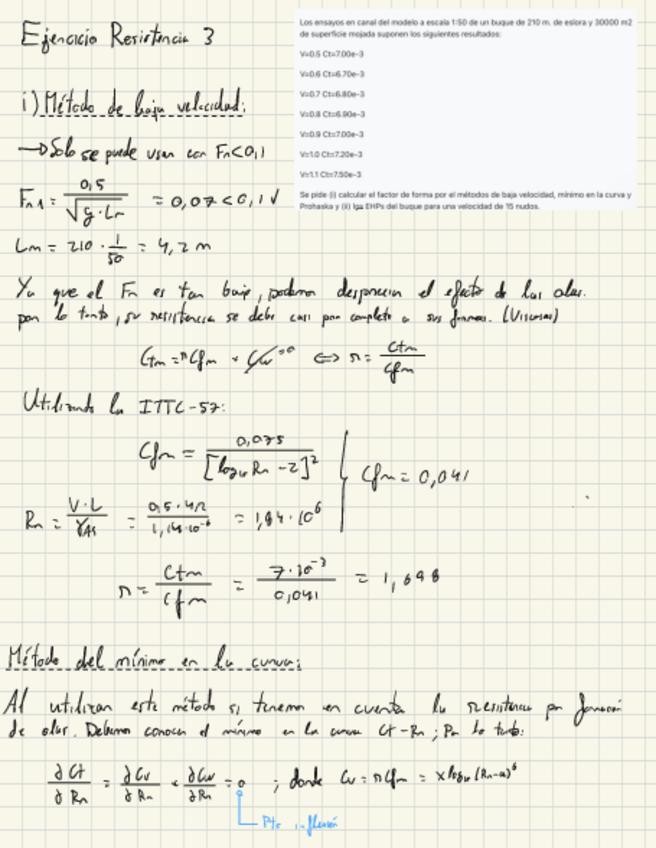 Ejercicio Resistencia 3
Los ensayos en canal del modelo a escala 1:50 de un buque de 210 m. de eslora y 30000 m2
de superficie mojada suponen los siguientes resultados:
V=0.5 Ct=7.00e-3
V=0.6 Ct=6.70e-3
V=0.7 Ct=6.80e-3
V=0.8 Ct=6.90e-3
V=0.9 Ct=7.00e-3
V=1.0 Ct=7.20e-3
V=1.1 Ct=7.50e-3
Se pide (i) calcular el factor de forma por el métodos de baja velocidad, mínimo en la curva y
Prohaska y (ii) las EHPs del buque para una velocidad de 15 nudos.
i) Método de baja velocidad:
→ Solo se puede usar con Fn<0,1
Fn1 = 0,5 / √(g·Lm) = 0,07 < 0,1 √
Lm = 210 · 1/50 = 4,2 m
Ya que el Fn es tan bajo, podemos despreciar el efecto de las olas.
por lo tanto, su resistencia se debe casi por completo a sus formas. (Viscosas)
Ctm = r Cfm + Cw =0 ⇔ r = Ctm / Cfm
Utilizando la ITTC-57:
Cfm = 0,075 / [log10 Rn - 2]² Cfm = 0,041
Rn = V·L / = 0,5·4,2 / = 1,84·10⁶
r = Ctm / Cfm = 7·10⁻³ / 0,041 = 1,698
Método del mínimo en la curva:
Al utilizar este método si tenemos en cuenta la resistencia por formación
de olas. Debemos conocer el mínimo en la curva Ct-Rn; Por lo tanto:
∂Ct/∂Rn = ∂Cv/∂Rn + ∂Cw/∂Rn = 0 ; donde Cv = r Cfm =
Pto inflexión